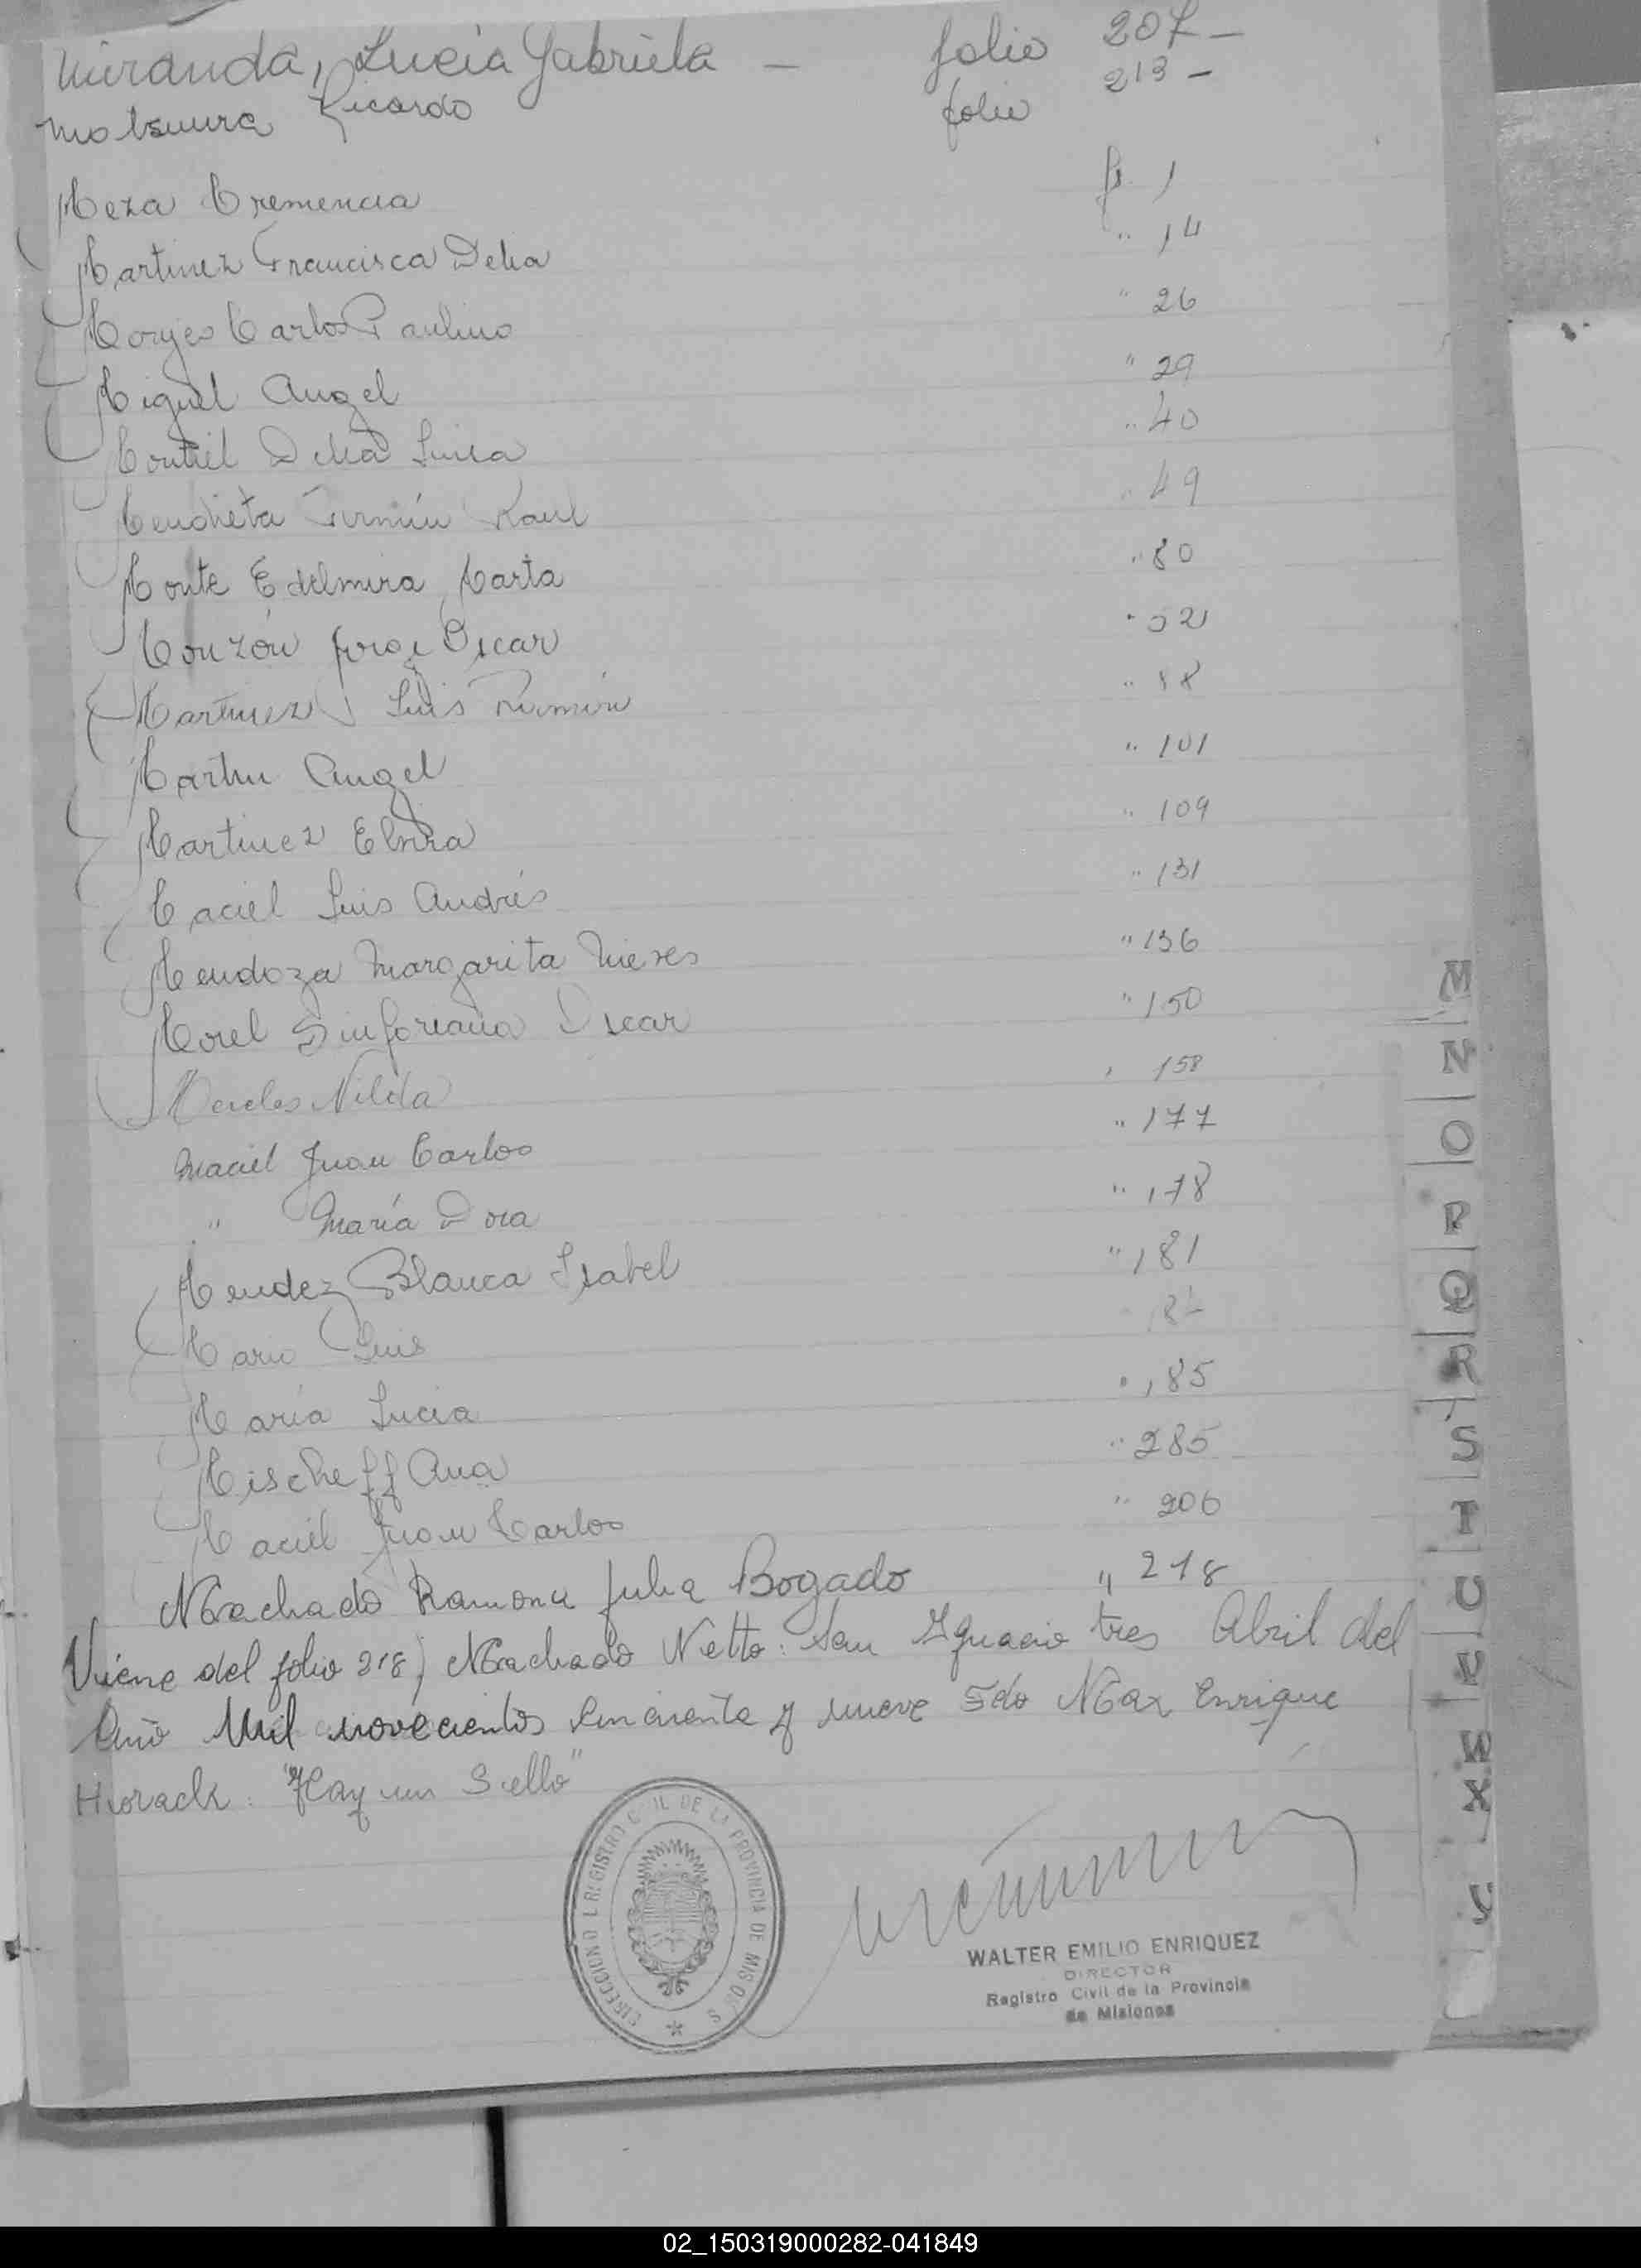 Miranda, Lucia Gabriela - folio 207 -
Matsuura Ricardo folio 213 -
Meza Cremencia fº 1
Martinez Francisca Delia " 14
Monges Carlos Paulino " 26
Miguel Angel " 29
Montiel Delia Luisa " 40
Mendieta Fermín Raul " 49
Monte Edelmira Marta " 80
Monzón Jorge Oscar "
Martinez Luis Ramón " 88
Martin Angel " 101
Martinez Elvira " 109
Maciel Luis Andrés " 131
Mendoza Margarita Nieves " 136
Morel Sinforiano Oscar " 150
Nilda " 158
Maciel Juan Carlos " 177
" María Dora " 178
Mendez Blanca Isabel " 181
Mario Luis
María Lucia " 185
Mischeff Ana " 285
Maciel Juan Carlos " 206
Machado Ramona Julia Bogado " 218
Viene del folio 218) Machado Netto: San Ignacio tres Abril del
Año Mil novecientos cincuenta y nueve Fdo Max Enrique
Horack: "Hay un Sello"
DIRECCION D L REGISTRO CIVIL DE LA PROVINCIA DE MISIONES
WALTER EMILIO ENRIQUEZ
DIRECTOR
Registro Civil de la Provincia
de Misiones
M
N
O
P
Q
R
S
T
U
V
W
X
02_150319000282-041849